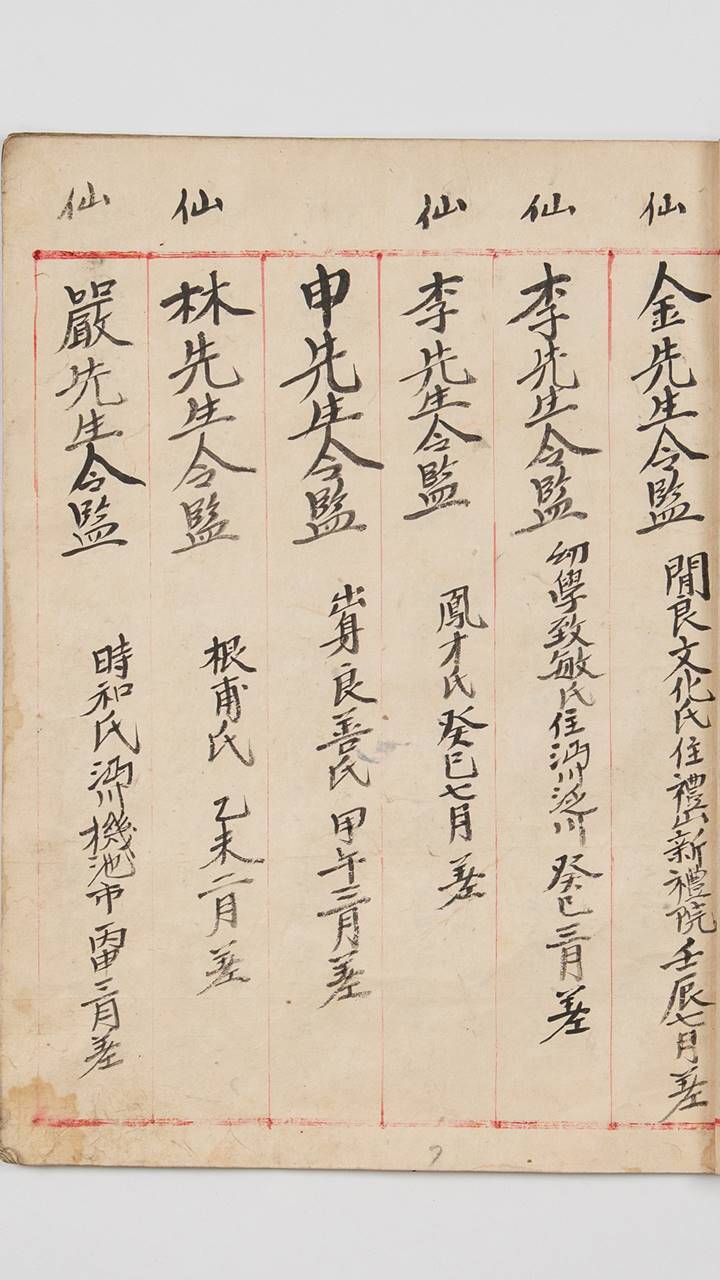 仙
金先生令監 閒良文化氏住禮山新禮院 壬辰七月差
仙
李先生令監 幼學致敏氏住沔川泛川 癸巳三月差
仙
李先生令監 鳳才氏 癸巳七月差
申先生令監 出身良善氏 甲午三月差
仙
林先生令監 根甫氏 乙未二月差
仙
嚴先生令監 時和氏沔川機池市 丙申三月差